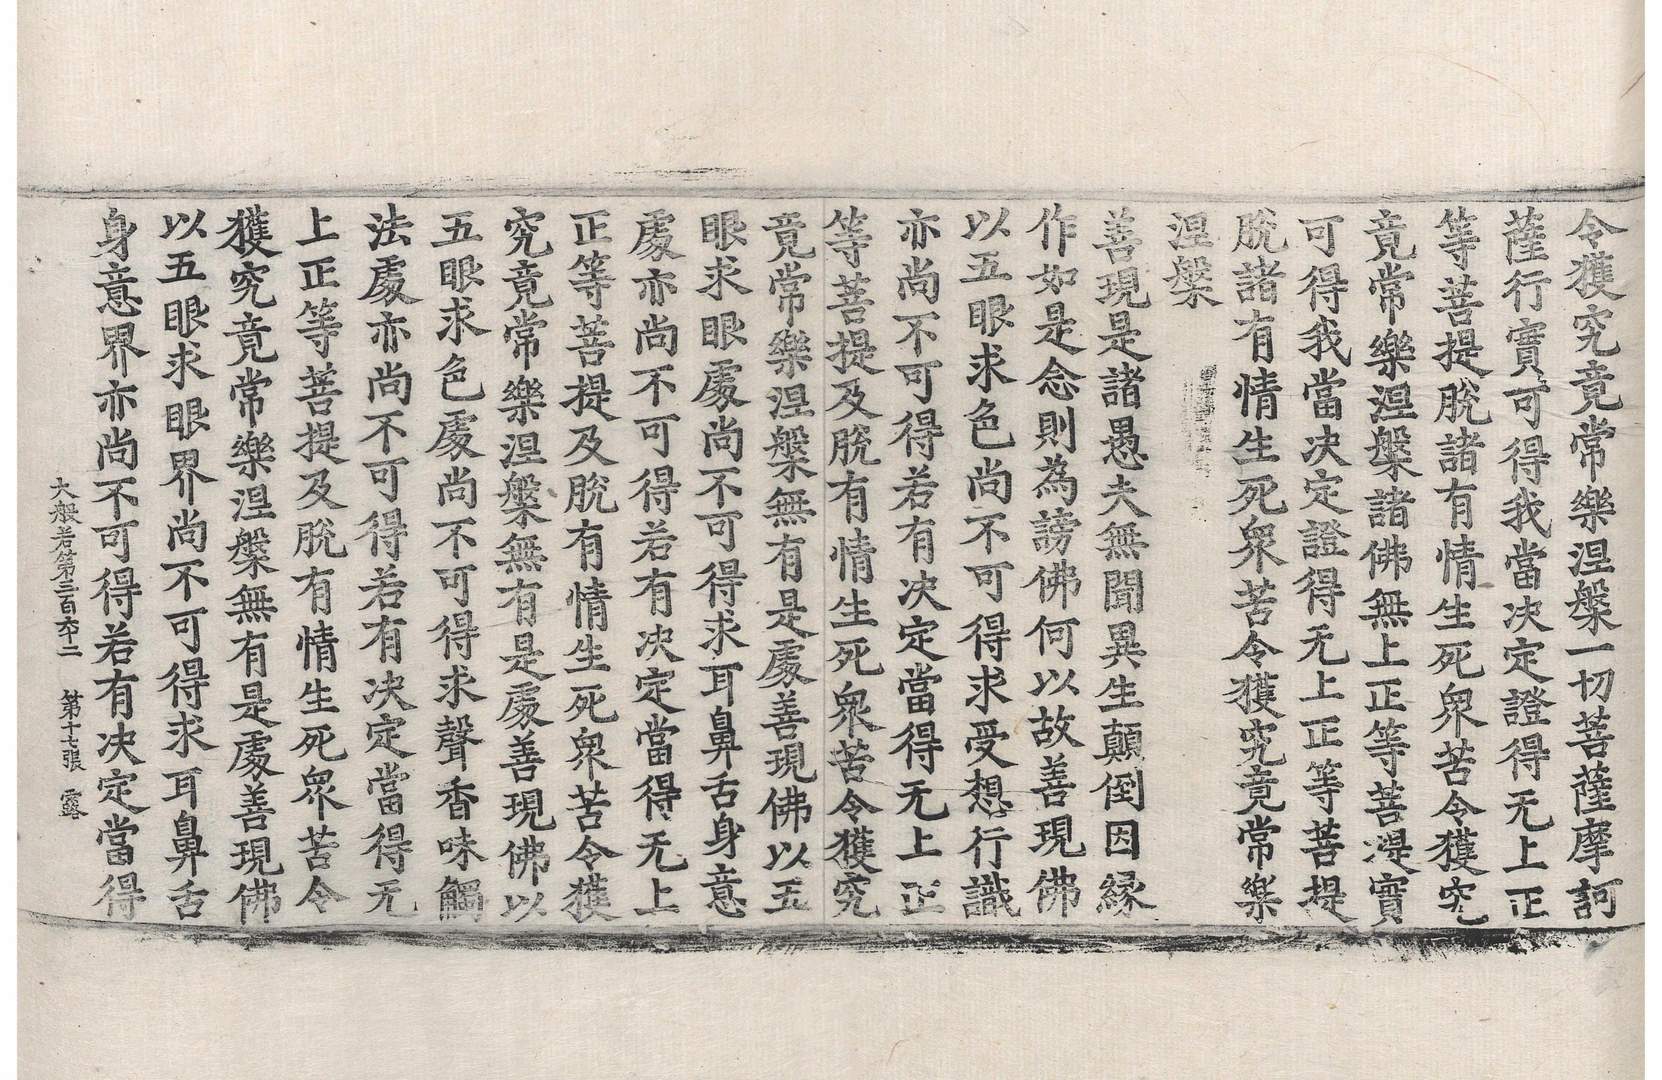 令獲究竟常樂涅槃一切菩薩摩訶
薩行實可得我當決定證得无上正
等菩提脫諸有情生死衆苦令獲究
竟常樂涅槃諸佛無上正等菩提實
可得我當決定證得无上正等菩提
脫諸有情生死衆苦令獲究竟常樂
涅槃
善現是諸愚夫無聞異生顛倒因緣
作如是念則為謗佛何以故善現佛
以五眼求色尚不可得求受想行識
亦尚不可得若有決定當得无上正
等菩提及脫有情生死衆苦令獲究
竟常樂涅槃無有是處善現佛以五
眼求眼處尚不可得求耳鼻舌身意
處亦尚不可得若有決定當得无上
正等菩提及脫有情生死衆苦令獲
究竟常樂涅槃無有是處善現佛以
五眼求色處尚不可得求聲香味觸
法處亦尚不可得若有決定當得无
上正等菩提及脫有情生死衆苦令
獲究竟常樂涅槃無有是處善現佛
以五眼求眼界尚不可得求耳鼻舌
身意界亦尚不可得若有決定當得
大般若第三百六十二 第十七張 露